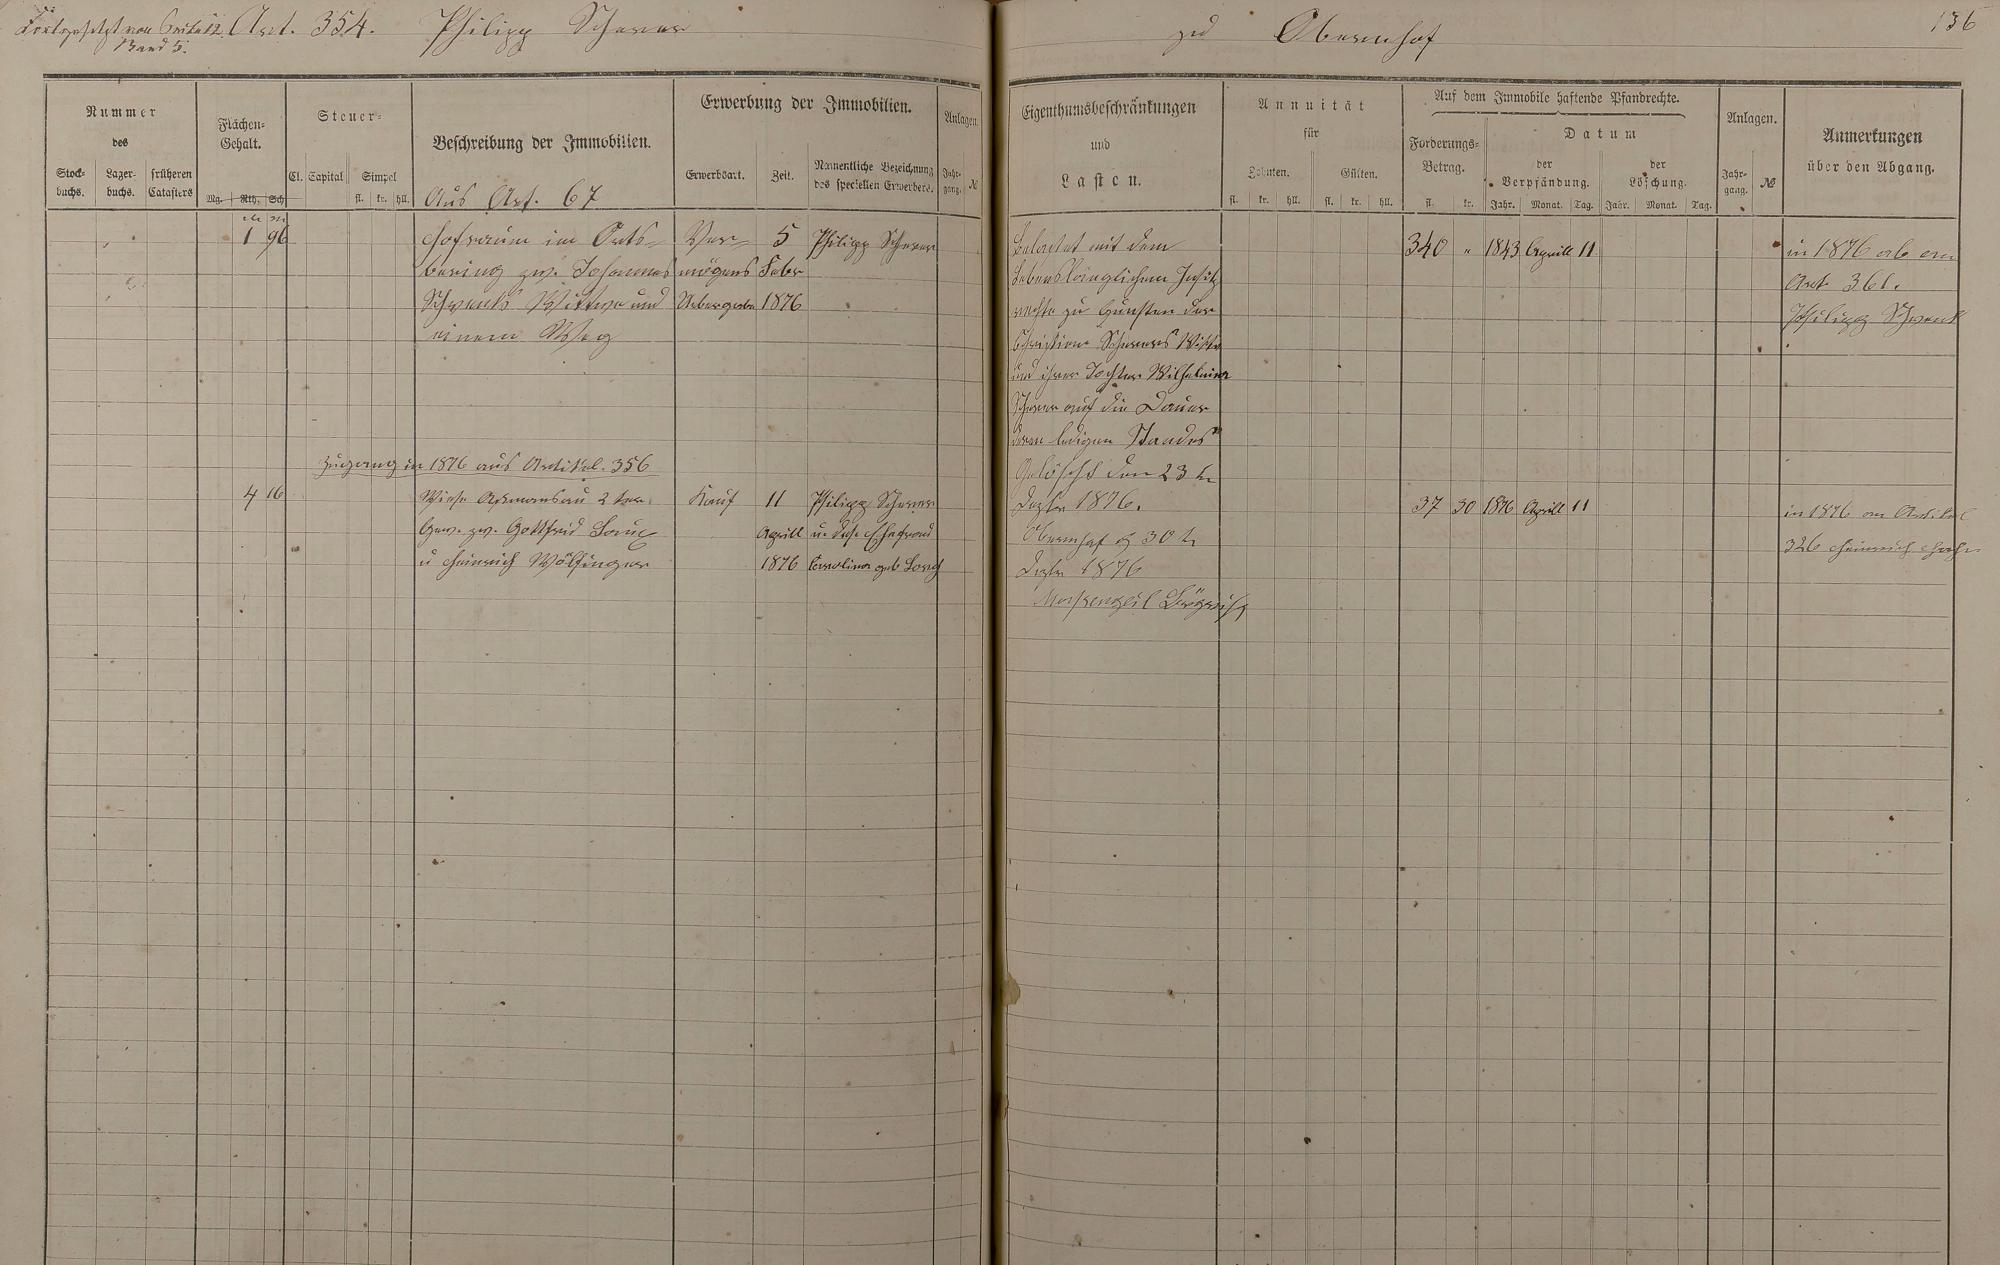 Fortgesetzt von Seite 12 Band 5.
Art. 354. Philipp Scherer
zu Obernhof
136
Nummer des
Stockbuchs.
Lagerbuchs.
früheren Catasters
Flächen-Gehalt.
Mg. Rth. Sch
Steuer-
Cl. Capital Simpel
fl. kr. hll.
Beschreibung der Immobilien.
Erwerbung der Immobilien.
Erwerbsart. Zeit.
Namentliche Bezeichnung des speciellen Erwerbers.
Anlagen.
Jahrgang. №
Eigenthumsbeschränkungen
und
Lasten.
Annuität
für
Zehnten. Gülten.
fl. kr. hll. fl. kr. hll.
Auf dem Immobile haftende Pfandrechte.
Forderungs-Betrag.
fl. kr.
Datum
der Verpfändung.
der Löschung.
Jahr. Monat. Tag. Jahr. Monat. Tag.
Anlagen.
Jahrgang. №
Anmerkungen
über den Abgang.
Aus Art. 67
1 96
Hofraum im Orts-
bering zw. Johannes
Schwenk Wittwe und
einem Weg
Ver-
mögens
Uebergabe
5
Febr
1876
Philipp Scherer
Belastet mit dem
lebenslänglichen
rechte zu Gunsten der
Christian Scherers Wittwe
und ihrer Tochter Wilhelmine
Scherer auf die Dauer
deren ledigen Standes"
Gelöscht den 23 te
Dezbr 1876.
Obernhof d 30 te
Dezbr 1876
340 " 1843 Aprill 11
in 1876 ab an
Art 361.
Philipp Schwenk
Zugang in 1876 aus Artikel. 356
4 16
Wiese 2 ter
Gew. zw. Gottfried
u Heinrich Wölfinger
Kauf
11
Aprill
1876
Philipp Scherer
u. dess. Ehefrau
Carolina geb
37 30 1876 Aprill 11
in 1876 an Artikel
326 Heinrich